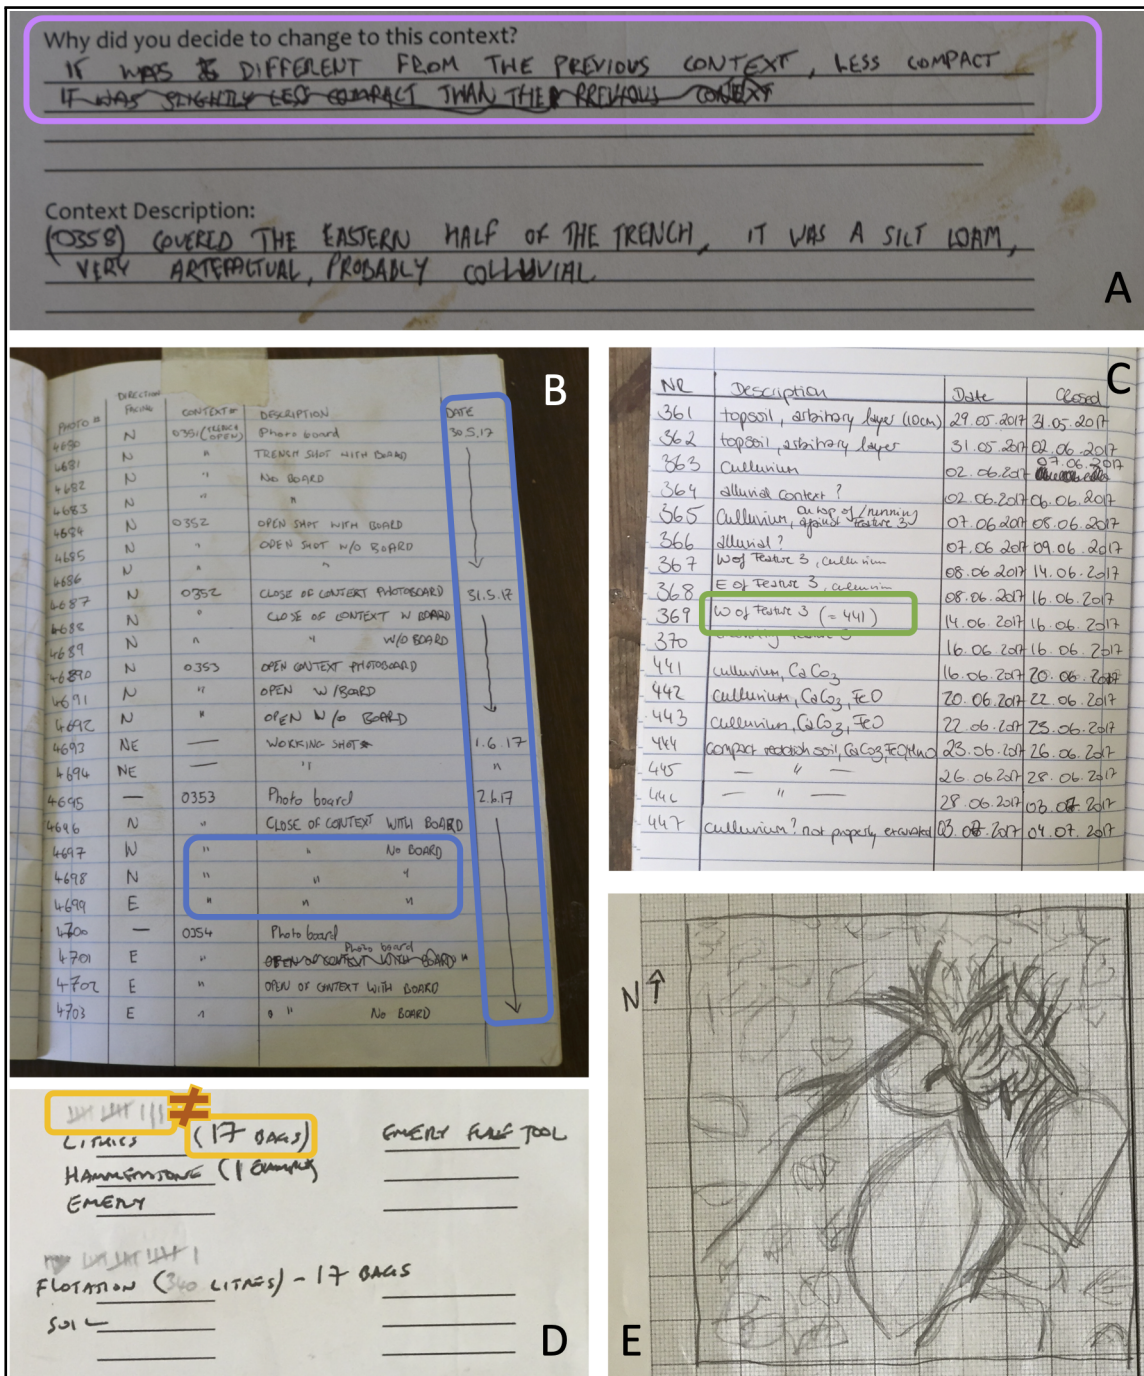 Why did you decide to change to this context?
IT WAS DIFFERENT FROM THE PREVIOUS CONTEXT, LESS COMPACT
IT WAS SLIGHTLY LESS COMPACT THAN THE PREVIOUS CONTEXT
Context Description:
(0358) COVERED THE EASTERN HALF OF THE TRENCH, IT WAS A SILT LOAM,
VERY ARTEFACTUAL, PROBABLY COLLUVIAL
A
B
PHOTO # DIRECTION FACING CONTEXT # DESCRIPTION DATE
4680 N 0351 (TRENCH OPEN) Photo board 30.5.17
4681 N " TRENCH SHOT WITH BOARD
4682 N " NO BOARD
4683 N " "
4684 N 0352 OPEN SHOT WITH BOARD
4685 N " OPEN SHOT W/O BOARD
4686 N " "
4687 N 0352 CLOSE OF CONTEXT PHOTOBOARD 31.5.17
4688 N " CLOSE OF CONTEXT W BOARD
4689 N " " W/O BOARD
4690 N 0353 OPEN CONTEXT PHOTOBOARD
4691 N " OPEN W/BOARD
4692 N " OPEN W/O BOARD
4693 NE — WORKING SHOT 1.6.17
4694 NE — " "
4695 — 0353 Photo board 2.6.17
4696 N " CLOSE OF CONTEXT WITH BOARD
4697 N " " NO BOARD
4698 N " " "
4699 E " " "
4700 — 0354 Photo board
4701 E " OPEN OF CONTEXT WITH BOARD Photo board "
4702 E " OPEN OF CONTEXT WITH BOARD
4703 E " " " NO BOARD
C
NR Description Date Closed
361 topsoil, arbitrary layer (10cm) 29.05.2017 31.05.2017
362 topsoil, arbitrary layer 31.05.2017 02.06.2017
363 culluvium 02.06.2017 07.06.2017
364 alluvial context? 02.06.2017 06.06.2017
365 culluvium, on top of/running against Feature 3 07.06.2017 08.06.2017
366 alluvial? 07.06.2017 09.06.2017
367 W of Feature 3, culluvium 08.06.2017 14.06.2017
368 E of Feature 3, culluvium 08.06.2017 16.06.2017
369 W of Feature 3 (= 441) 14.06.2017 16.06.2017
370 Feature 3 16.06.2017 16.06.2017
441 culluvium, CaCo3 16.06.2017 20.06.2017
442 culluvium, CaCo3, FeO 20.06.2017 22.06.2017
443 culluvium, CaCo3, FeO 22.06.2017 23.06.2017
444 compact reddish soil, CaCo3, FeO, MnO 23.06.2017 26.06.2017
445 — " — 26.06.2017 28.06.2017
446 — " — 28.06.2017 03.07.2017
447 culluvium? not properly excavated 03.07.2017 04.07.2017
≠
LITHICS (17 BAGS) EMERY FLAKE TOOL
HAMMERSTONE (1 EXAMPLE)
EMERY
FLOTATION (340 LITRES) - 17 BAGS
SOIL
D
N
E